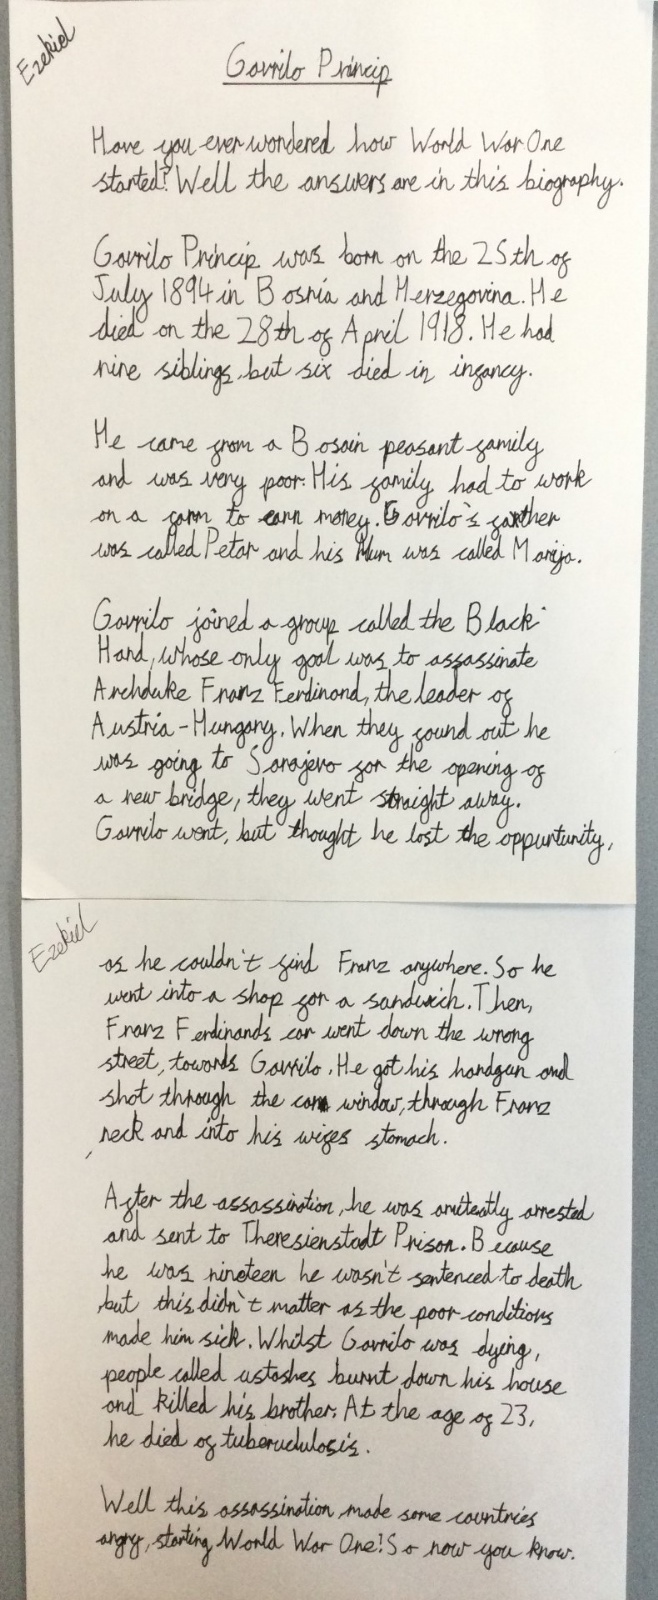 Ezekiel
Gavrilo Princip
Have you ever wondered how World War One
started? Well the answers are in this biography.
Gavrilo Princip was born on the 25th of
July 1894 in Bosnia and Herzegovina. He
died on the 28th of April 1918. He had
nine siblings, but six died in infancy.
He came from a Bosain peasant family
and was very poor. His family had to work
on a farm to earn money. Gavrilo's farther
was called Petar and his Mum was called Marija.
Gavrilo joined a group called the Black
Hand, whose only goal was to assassinate
Archduke Franz Ferdinand, the leader of
Austria-Hungary. When they found out he
was going to Sarajevo for the opening of
a new bridge, they went straight away.
Gavrilo went, but thought he lost the oppurtunity,
Ezekiel
as he couldn't find Franz anywhere. So he
went into a shop for a sandwich. Then,
Franz Ferdinands car went down the wrong
street, towards Gavrilo. He got his handgun and
shot through the car window, through Franz
neck and into his wifes stomach.
After the assassination, he was arrested
and sent to Theresienstadt Prison. Because
he was nineteen he wasn't sentenced to death
but this didn't matter as the poor conditions
made him sick. Whilst Gavrilo was dying,
people called ustashes burnt down his house
and killed his brother. At the age of 23,
he died of tuberudulosis.
Well this assassination made some countries
angry, starting World War One! So now you know.